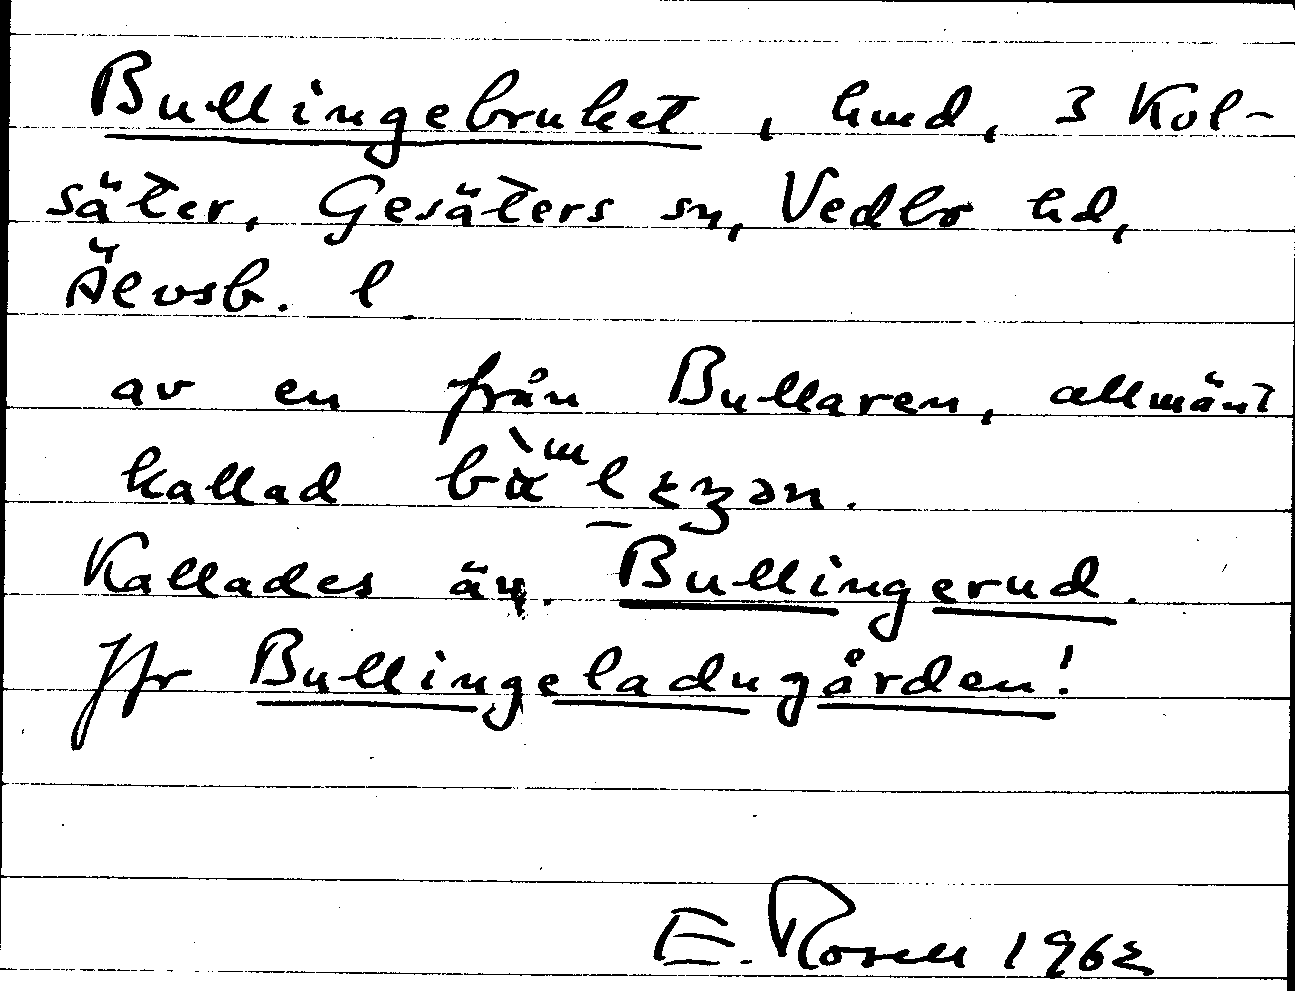 Bullingebruket, hmd, 3 Kol-
säter, Gesäters sn, Vedbo hd,
Älvsb. l
av en från Bullaren, allmänt
kallad
Kallades äv. Bullingerud.
Jfr Bullingeladugården!
E. Rosell 1962